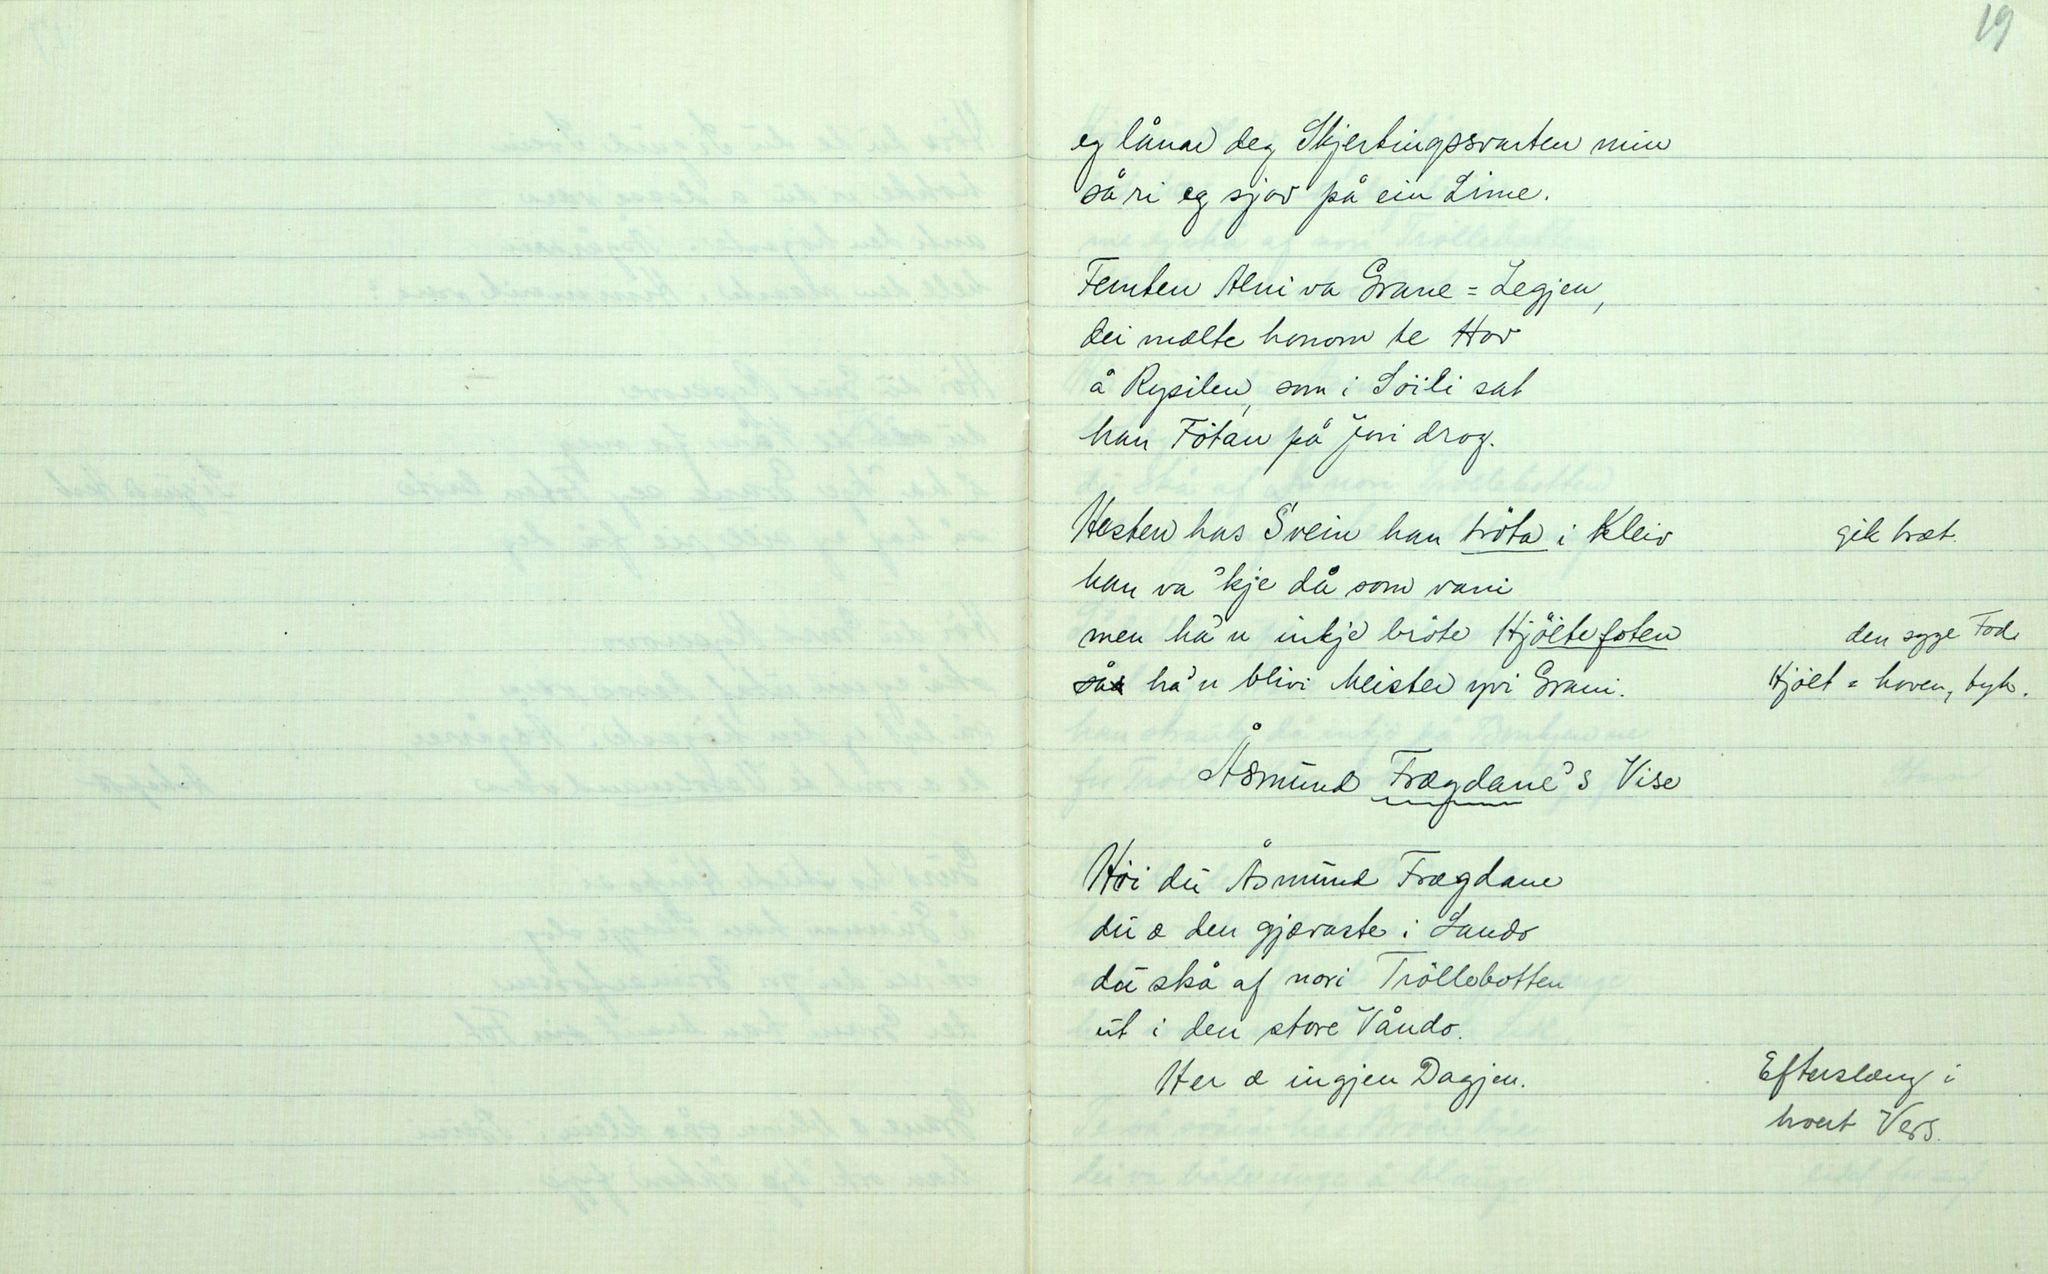 19
eg lånar deg Skjertingssvarten min
så ri eg sjøv på ein Lime.
Femten Alni va Grane = Legjen,
dei mælte honom te Hov
å Rysilen, som i Söili sat
han Fötan på Jori drog.
Hesten has Svein han tröta i Kleiv gik træt.
han va 'kje då som vani
men ha'n inkje bröte Hjöltefoten den syge Fod.
så ha'n blivi Meister yvi Grani. Hjölt = hoven, tyk.
Åsmund Frægdane's Vise
Höi dú Åsmund Frægdane
dú æ den gjævaste i Lando
dú skå af nori Tröllebotten
út i den store Våndo.
Her æ ingjen Dagjen. Efterslæng i
hvert Vers.